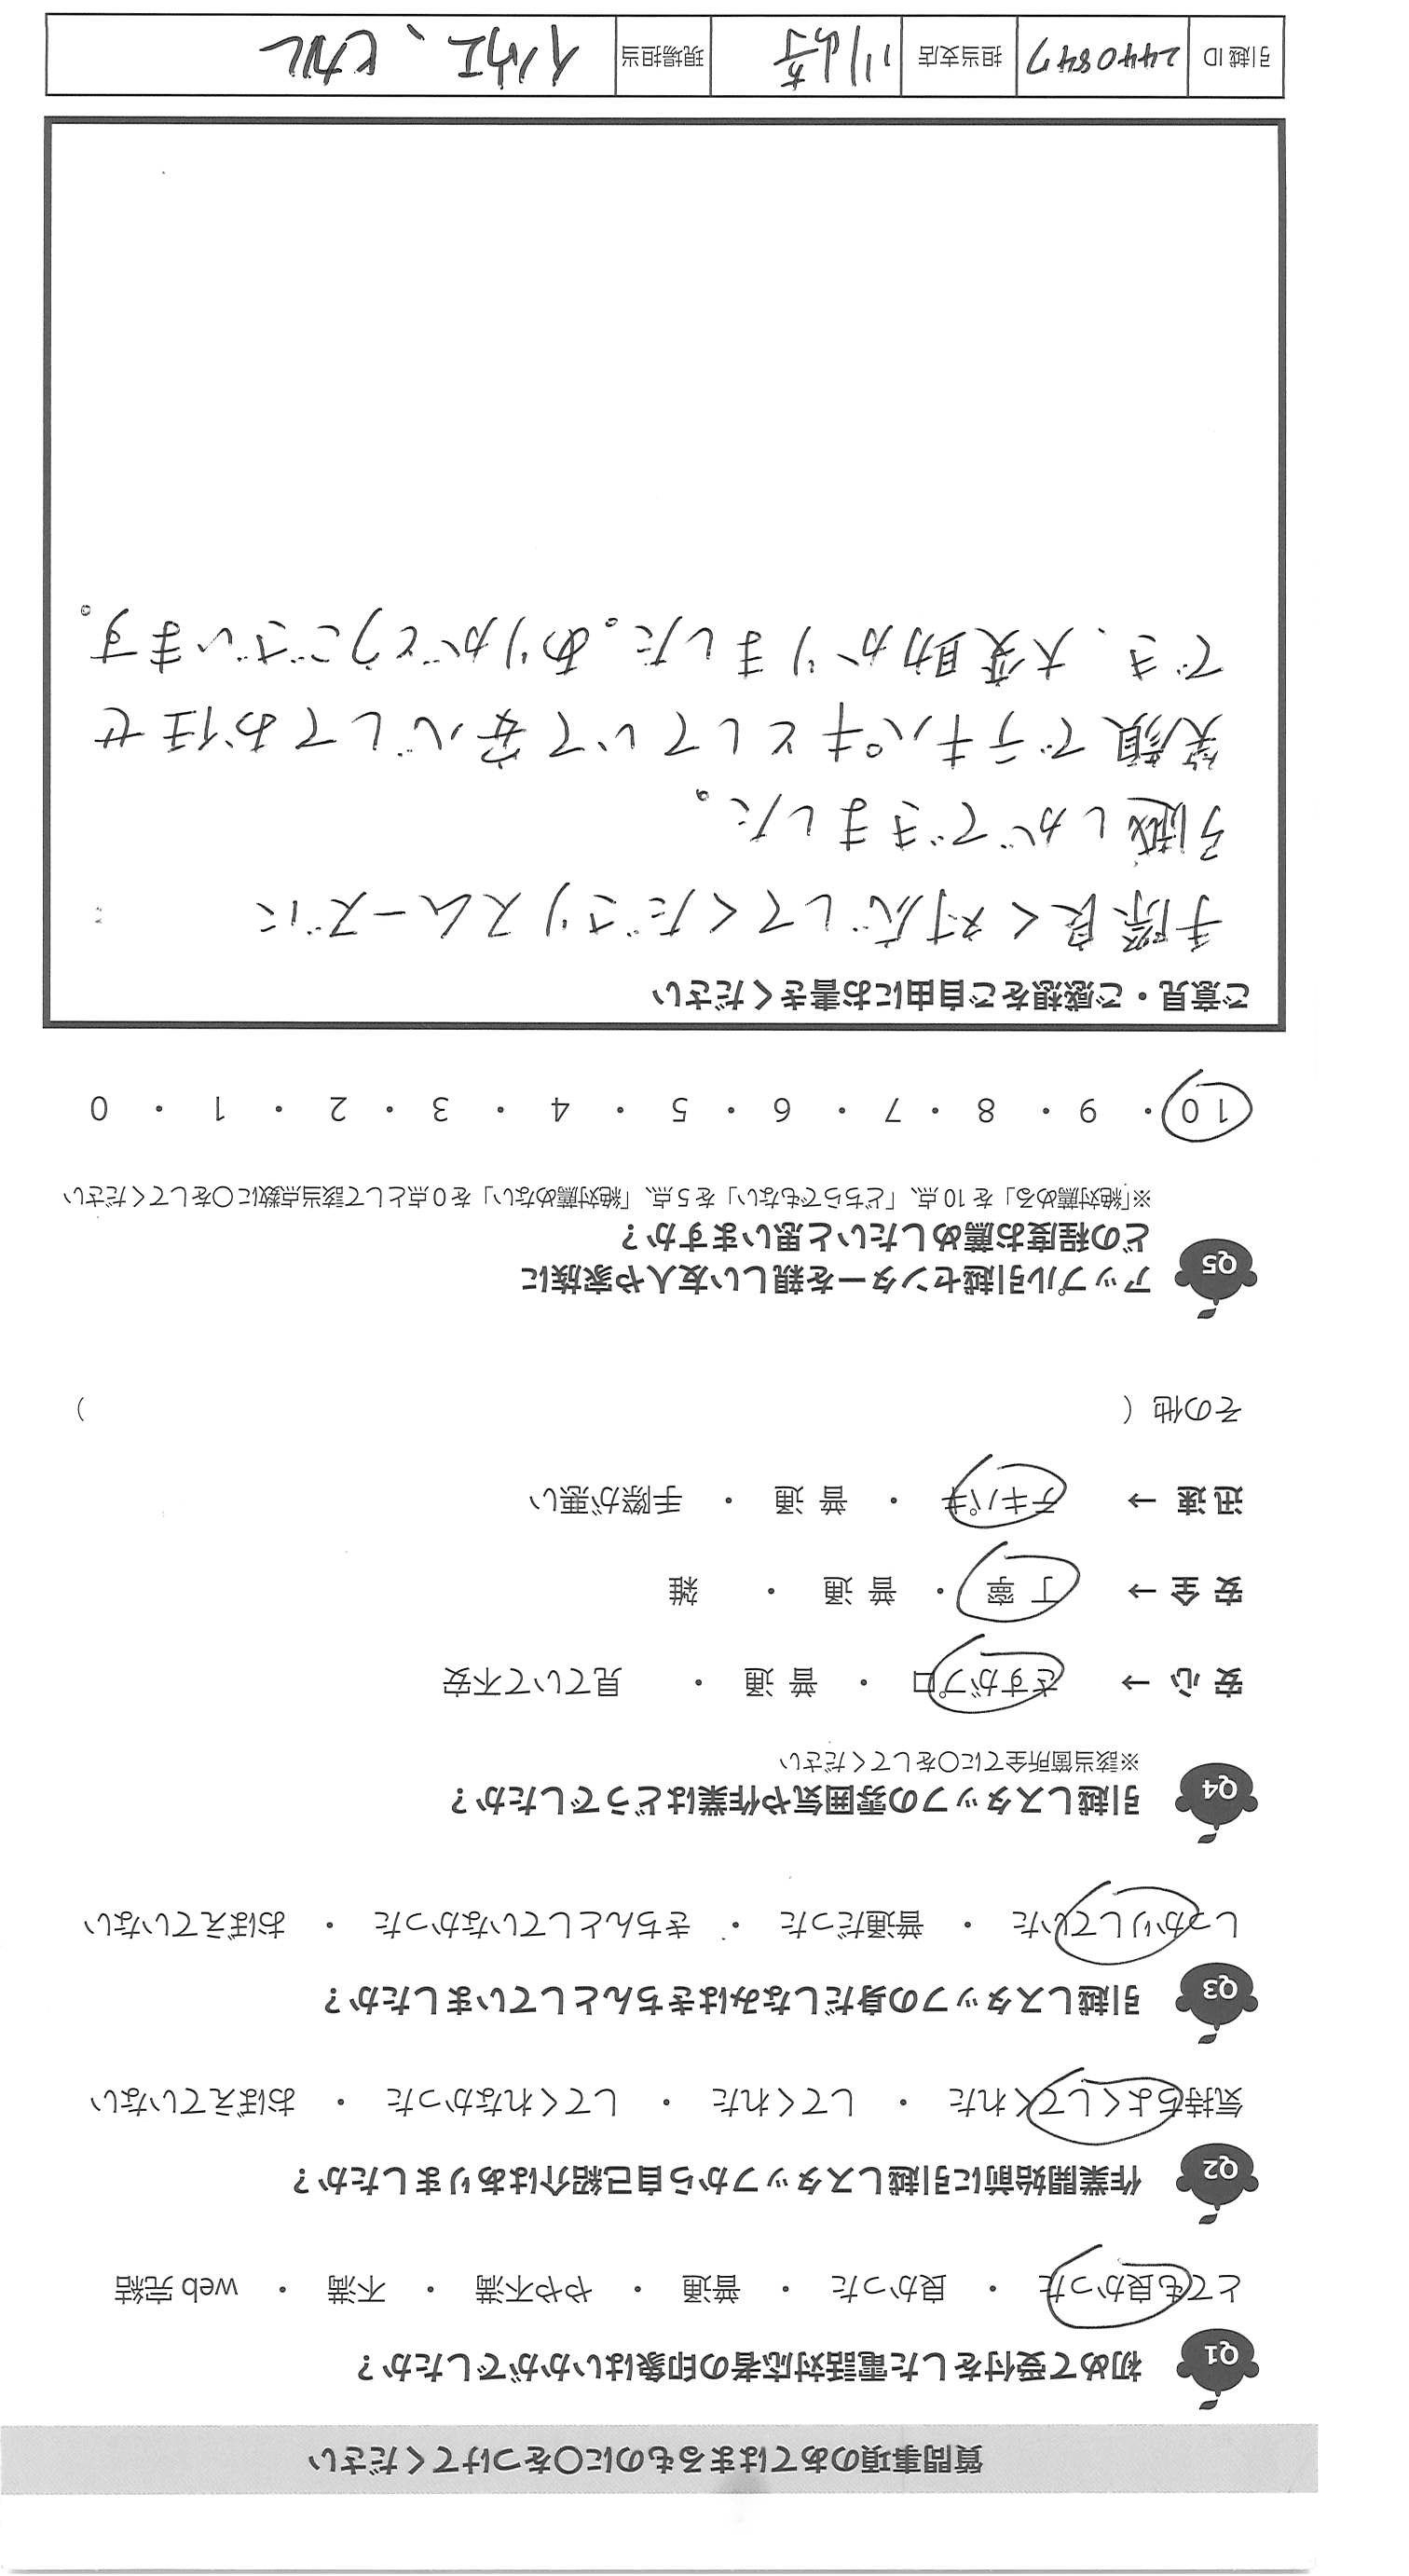 質問事項のあてはまるものに○をつけてください
Q1 初めて受付をした電話対応者の印象はいかがでしたか?
とても良かった ・ 良かった ・ 普通 ・ やや不満 ・ 不満 ・ web 完結
Q2 作業開始前に引越しスタッフから自己紹介はありましたか?
気持ちよくしてくれた ・ してくれた ・ してくれなかった ・ おぼえていない
Q3 引越しスタッフの身だしなみはきちんとしていましたか?
しっかりしていた ・ 普通だった ・ きちんとしていなかった ・ おぼえていない
Q4 引越しスタッフの雰囲気や作業はどうでしたか?
※該当箇所全てに○をしてください
安 心 → さすがプロ ・ 普 通 ・ 見ていて不安
安 全 → 丁 寧 ・ 普 通 ・ 雑
迅 速 → テキパキ ・ 普 通 ・ 手際が悪い
その他 ( )
Q5 アップル引越センターを親しい友人や家族に
どの程度お薦めしたいと思いますか?
※「絶対薦める」を 10 点、「どちらでもない」を 5 点、「絶対薦めない」を 0 点として該当点数に○をしてください
10 ・ 9 ・ 8 ・ 7 ・ 6 ・ 5 ・ 4 ・ 3 ・ 2 ・ 1 ・ 0
ご意見・ご感想をご自由にお書きください
手際良く対応してくださりスムーズに
引越しができました。
笑顔でテキパキとしていて安心してお任せ
でき、大変助かりました。ありがとうございます。
引越 ID 2440847 担当支店 川崎 現場担当 イノウエ、ヒカル